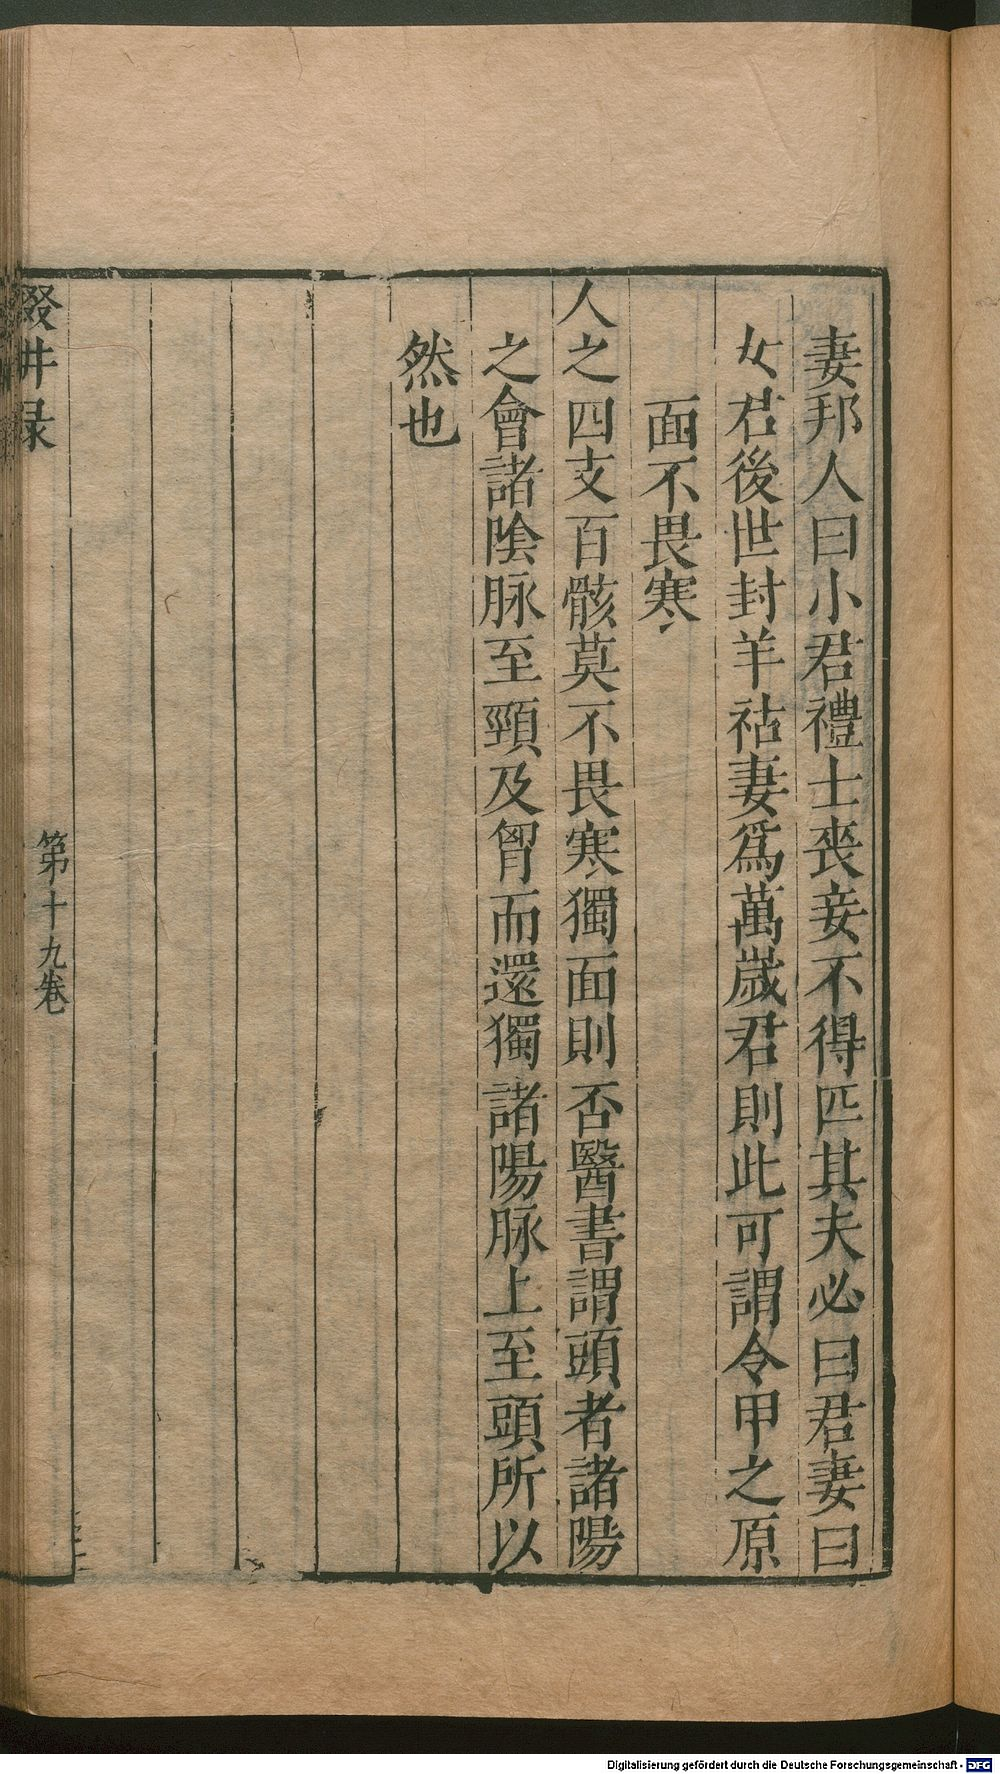 妻邦人曰小君禮士喪妾不得匹其夫必曰君妻曰
女君後世封羊祜妻爲萬歲君則此可謂令甲之原
面不畏寒
人之四支百骸莫不畏寒獨面則否醫書謂頭者諸陽
之會諸陰脉至頸及胷而還獨諸陽脉上至頭所以
然也
輟畊录
第十九卷
Digitalisierung gefördert durch die Deutsche Forschungsgemeinschaft - DFG